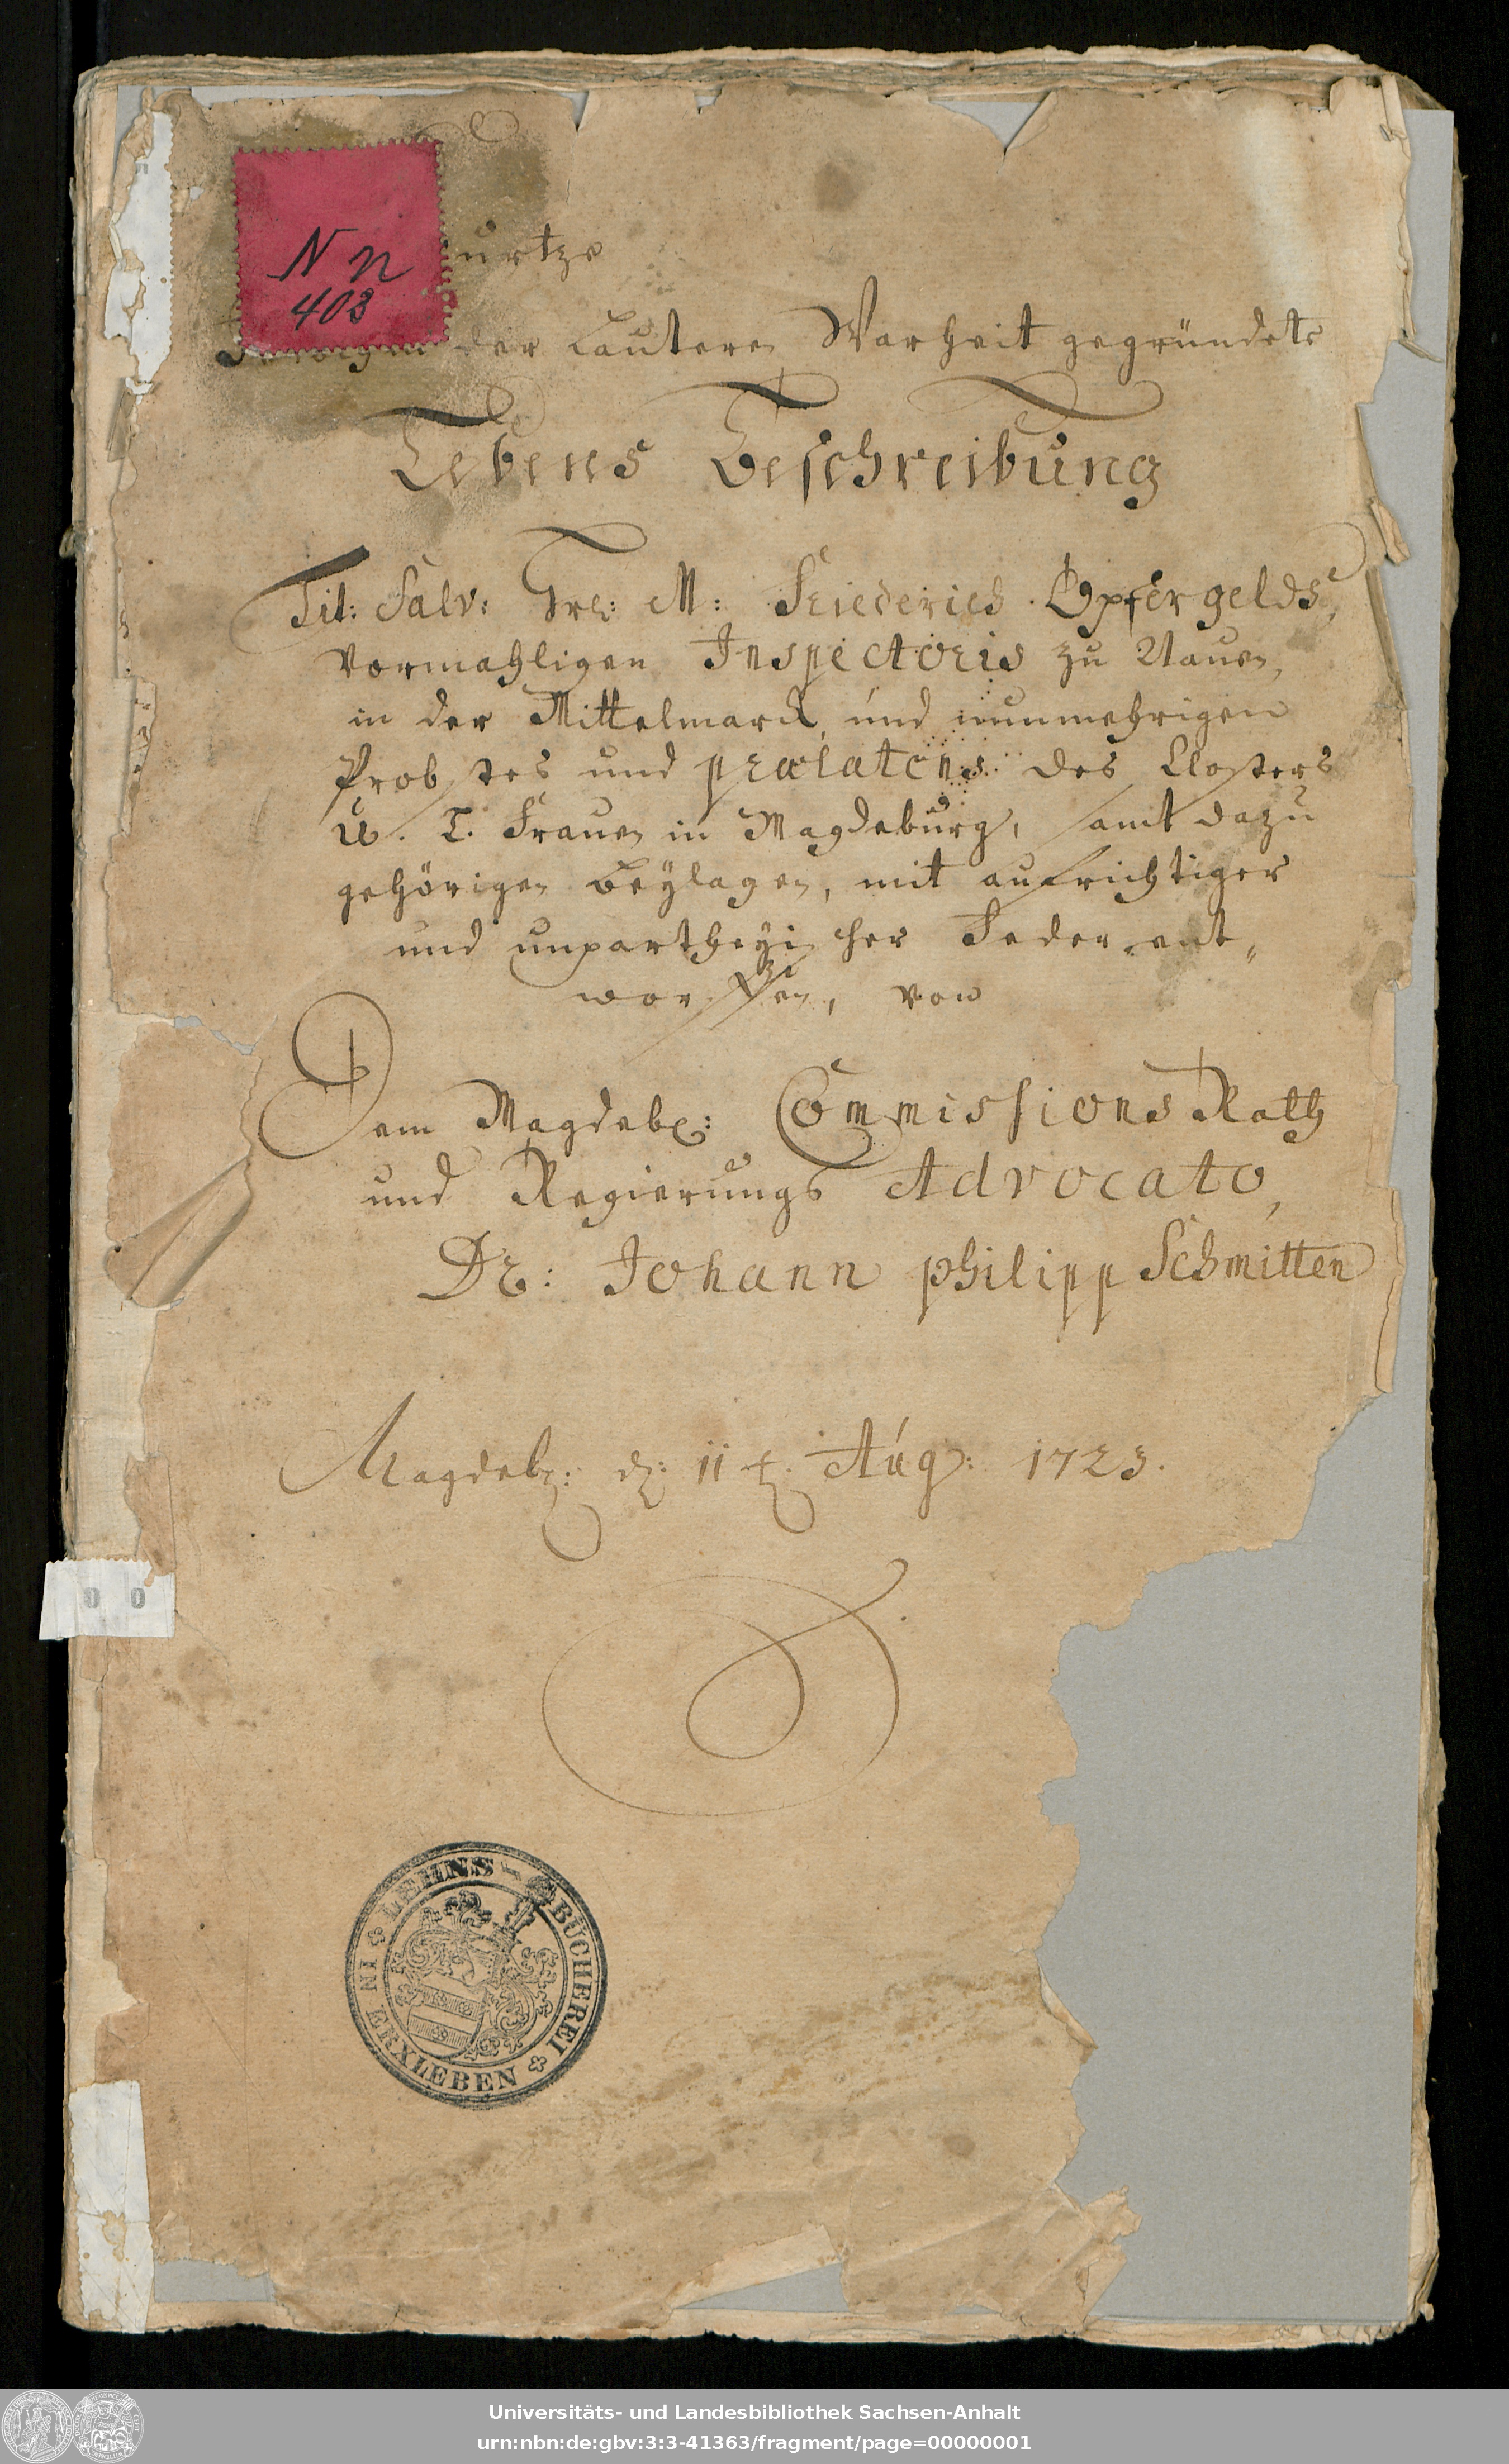 N n
403
urtze
der Lautern Warheit gegründete
Lebens Beschreibung
Tit: Salv: Hrn: M: Friederich Opfergelds,
Vormahligen Inspectoris zu Nauen,
in der Mittelmarck, und nunmehrigen
Probstes und Prælatens des Closters
U. L. Frauen in Magdeburg, samt dazu
gehörigen Beylagen, mit aufrichtiger
und unpartheyischer Feder ent„
worffen, von
Dem Magdeb: Commissions Rath
und Regierungs Advocato,
Dr: Johann Philipp Schmitten
Magdeb: d: 11 t. Aug: 1723.
LEHNS-BÜCHEREI IN ERXLEBEN
Universitäts- und Landesbibliothek Sachsen-Anhalt
urn:nbn:de:gbv:3:3-41363/fragment/page=00000001